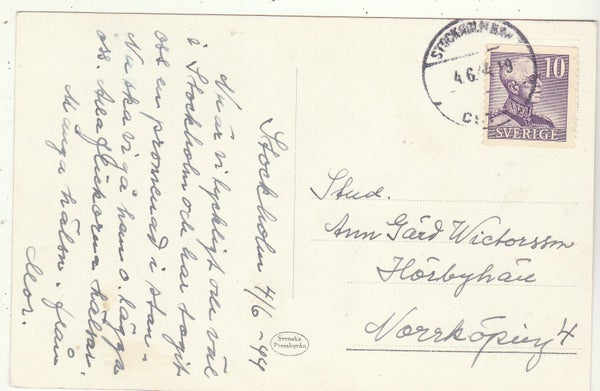 Stockholm 4/6 -44
Nu är vi lyckligt och väl
i Stockholm och har tagit
oss en promenad i stan.
Nu ska vi gå hem o. lägga
oss. Alla flickorna hälsar.
Många hälsn. från
Mor.
STOCKHOLM
4.6.44 19
10
SVERIGE
Stud.
Ann Gärd Wictorsson
Hörbyhäll
Norrköping 4
Svenska
Pressbyrån